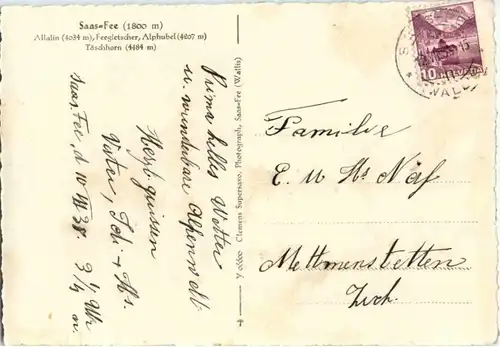 Saas-Fee (1800 m)
Allalin (4034 m), Feegletscher, Alphubel (4207 m)
Täschhorn (4494 m)
Prima helles Wetter
u. wunderbare Alpenwelt.
Herzl. grüssen
Vater, Idi +
Saas Fee, d 10 VII 38. 3 1/4 Uhr
7/0550 Clemens Supersaxo, Photograph, Saas-Fee (Wallis)
10 HELVETIA
(WALLIS)
Familie
E. u Hs Näf
Mettmenstetten
Zrch.